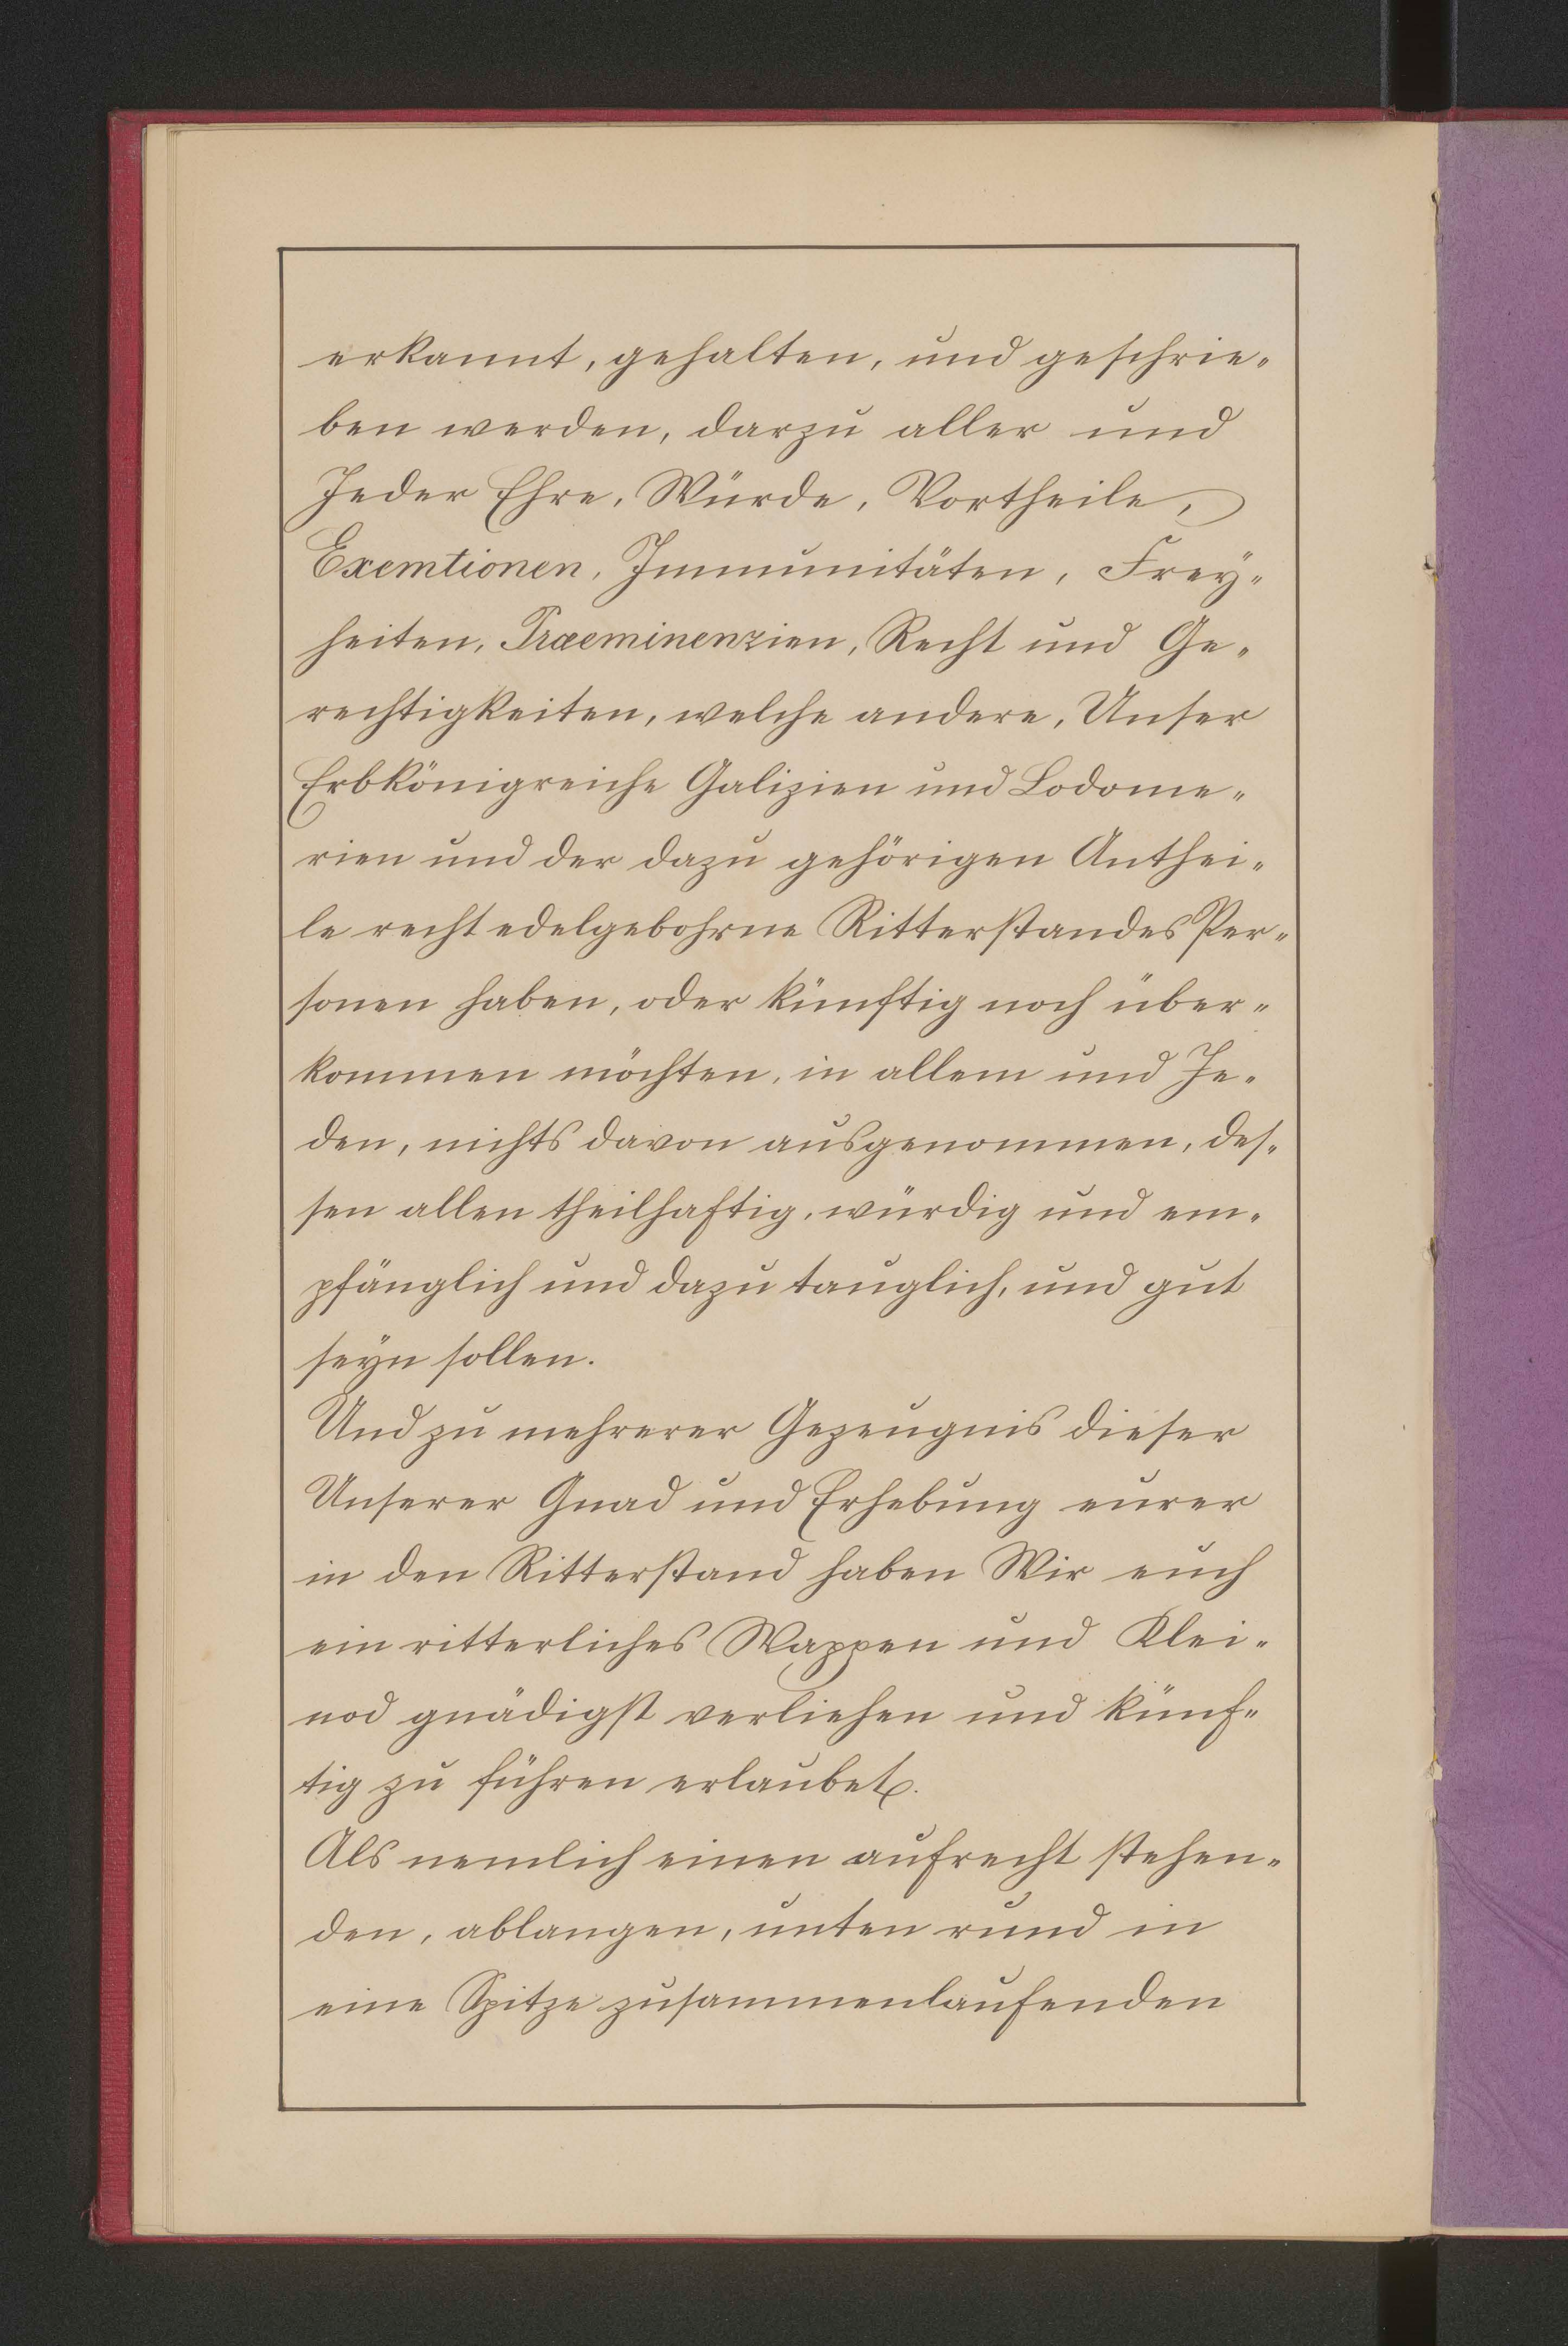 erkannt, gehalten, und geschrie-
ben werden, darzu aller und
Jeder Ehre, Würde, Vortheile,
Exemtionen, Immunitäten, Frey-
heiten, Praeminenzien, Recht und Ge-
rechtigkeiten, welche andere, Unser
Erbkönigreiche Galizien und Lodome-
rien und der dazu gehörigen Anthei-
le recht edelgebohrne Ritterstandes Per-
sonen haben, oder künftig noch über-
kommen möchten, in allem und Je-
den, nichts davon ausgenommen, des-
sen allen theilhaftig, würdig und em-
pfänglich und dazu tauglich, und gut
seyn sollen.
Und zu mehrerer Gezeugnis dieser
Unserer Gnad und Erhebung eurer
in den Ritterstand haben Wir euch
ein ritterliches Wappen und Klei-
nod gnädigst verliehen und künf-
tig zu führen erlaubet.
Als nemlich einen aufrecht stehen-
den, ablangen, unten rund in
eine Spitze zusammenlaufenden